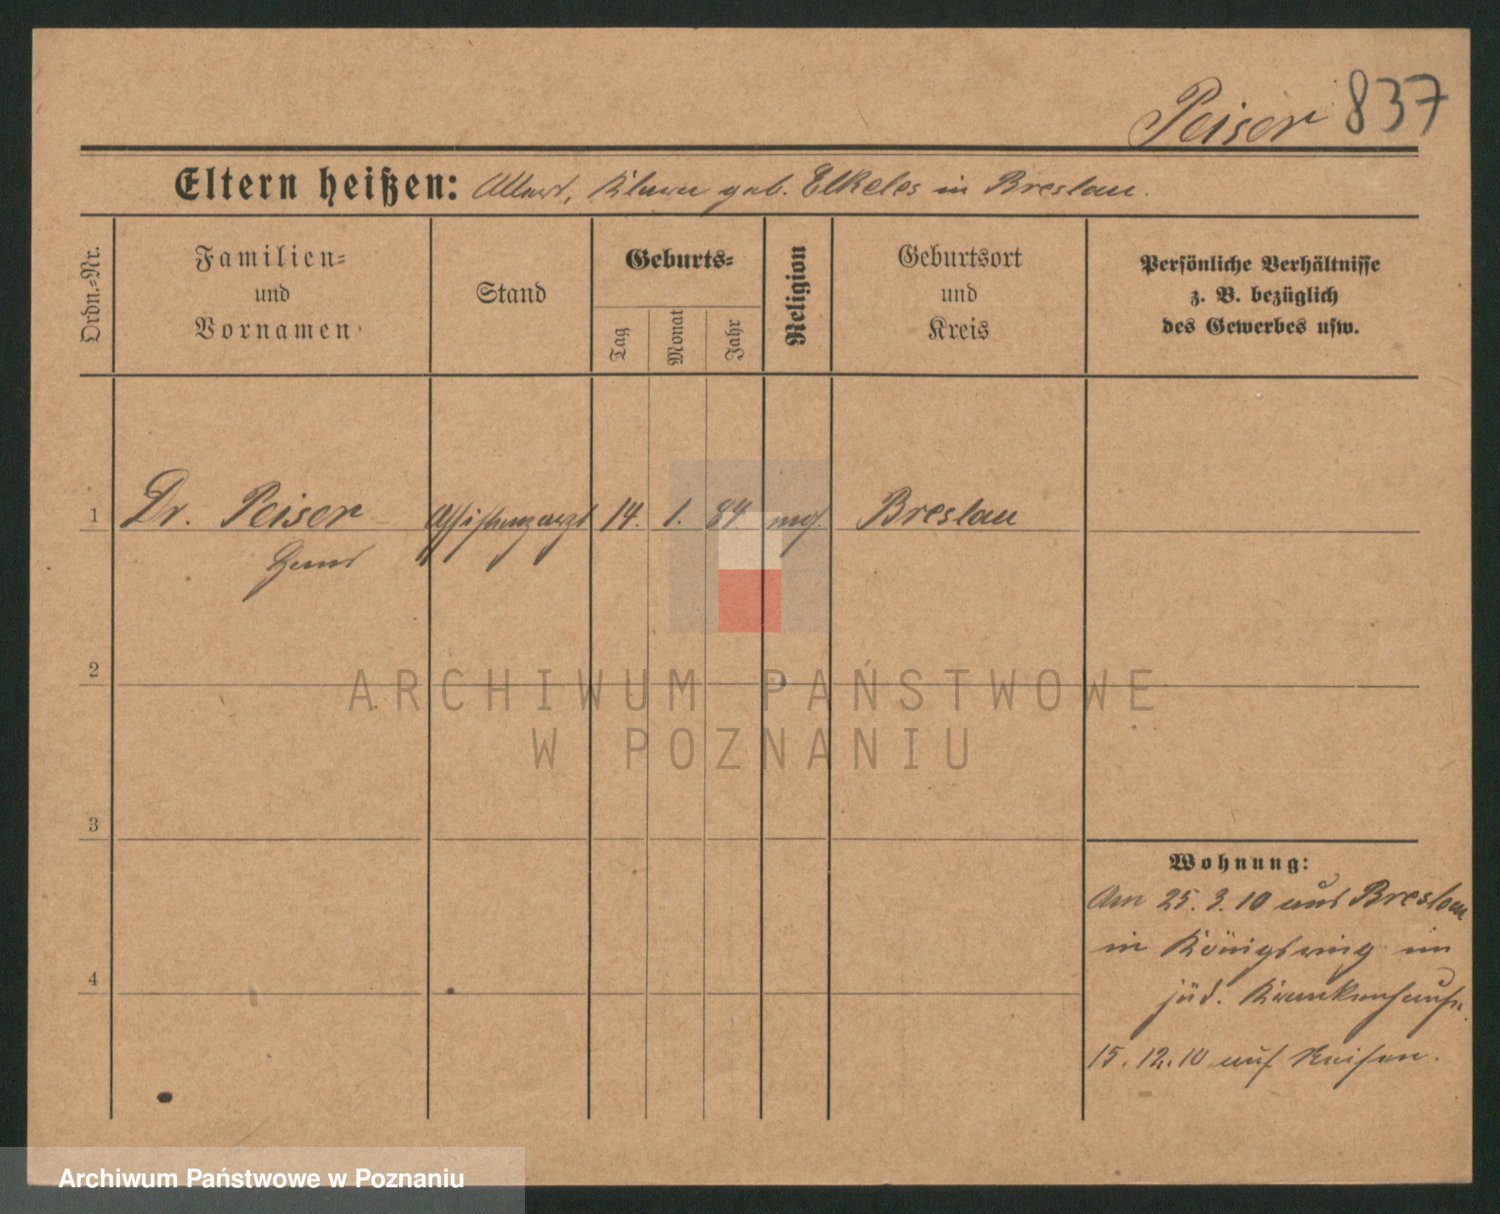 Peiser 837
Eltern heißen: Albert, Klara geb. Elkeles in Breslau.
Ordn.-Nr.
Familien- und Vornamen
Stand
Geburts-
Tag
Monat
Jahr
Religion
Geburtsort und Kreis
Persönliche Verhältnisse
z. B. bezüglich
des Gewerbes usw.
1 Dr. Peiser Assistenzarzt 14. 1. 84 mos. Breslau
2
3
4
Wohnung:
Am 25. 3. 10 aus Breslau
in Königsring im
jüd. Krankenhause.
15. 12. 10 auf Reisen.
ARCHIWUM PAŃSTWOWE
W POZNANIU
Archiwum Państwowe w Poznaniu